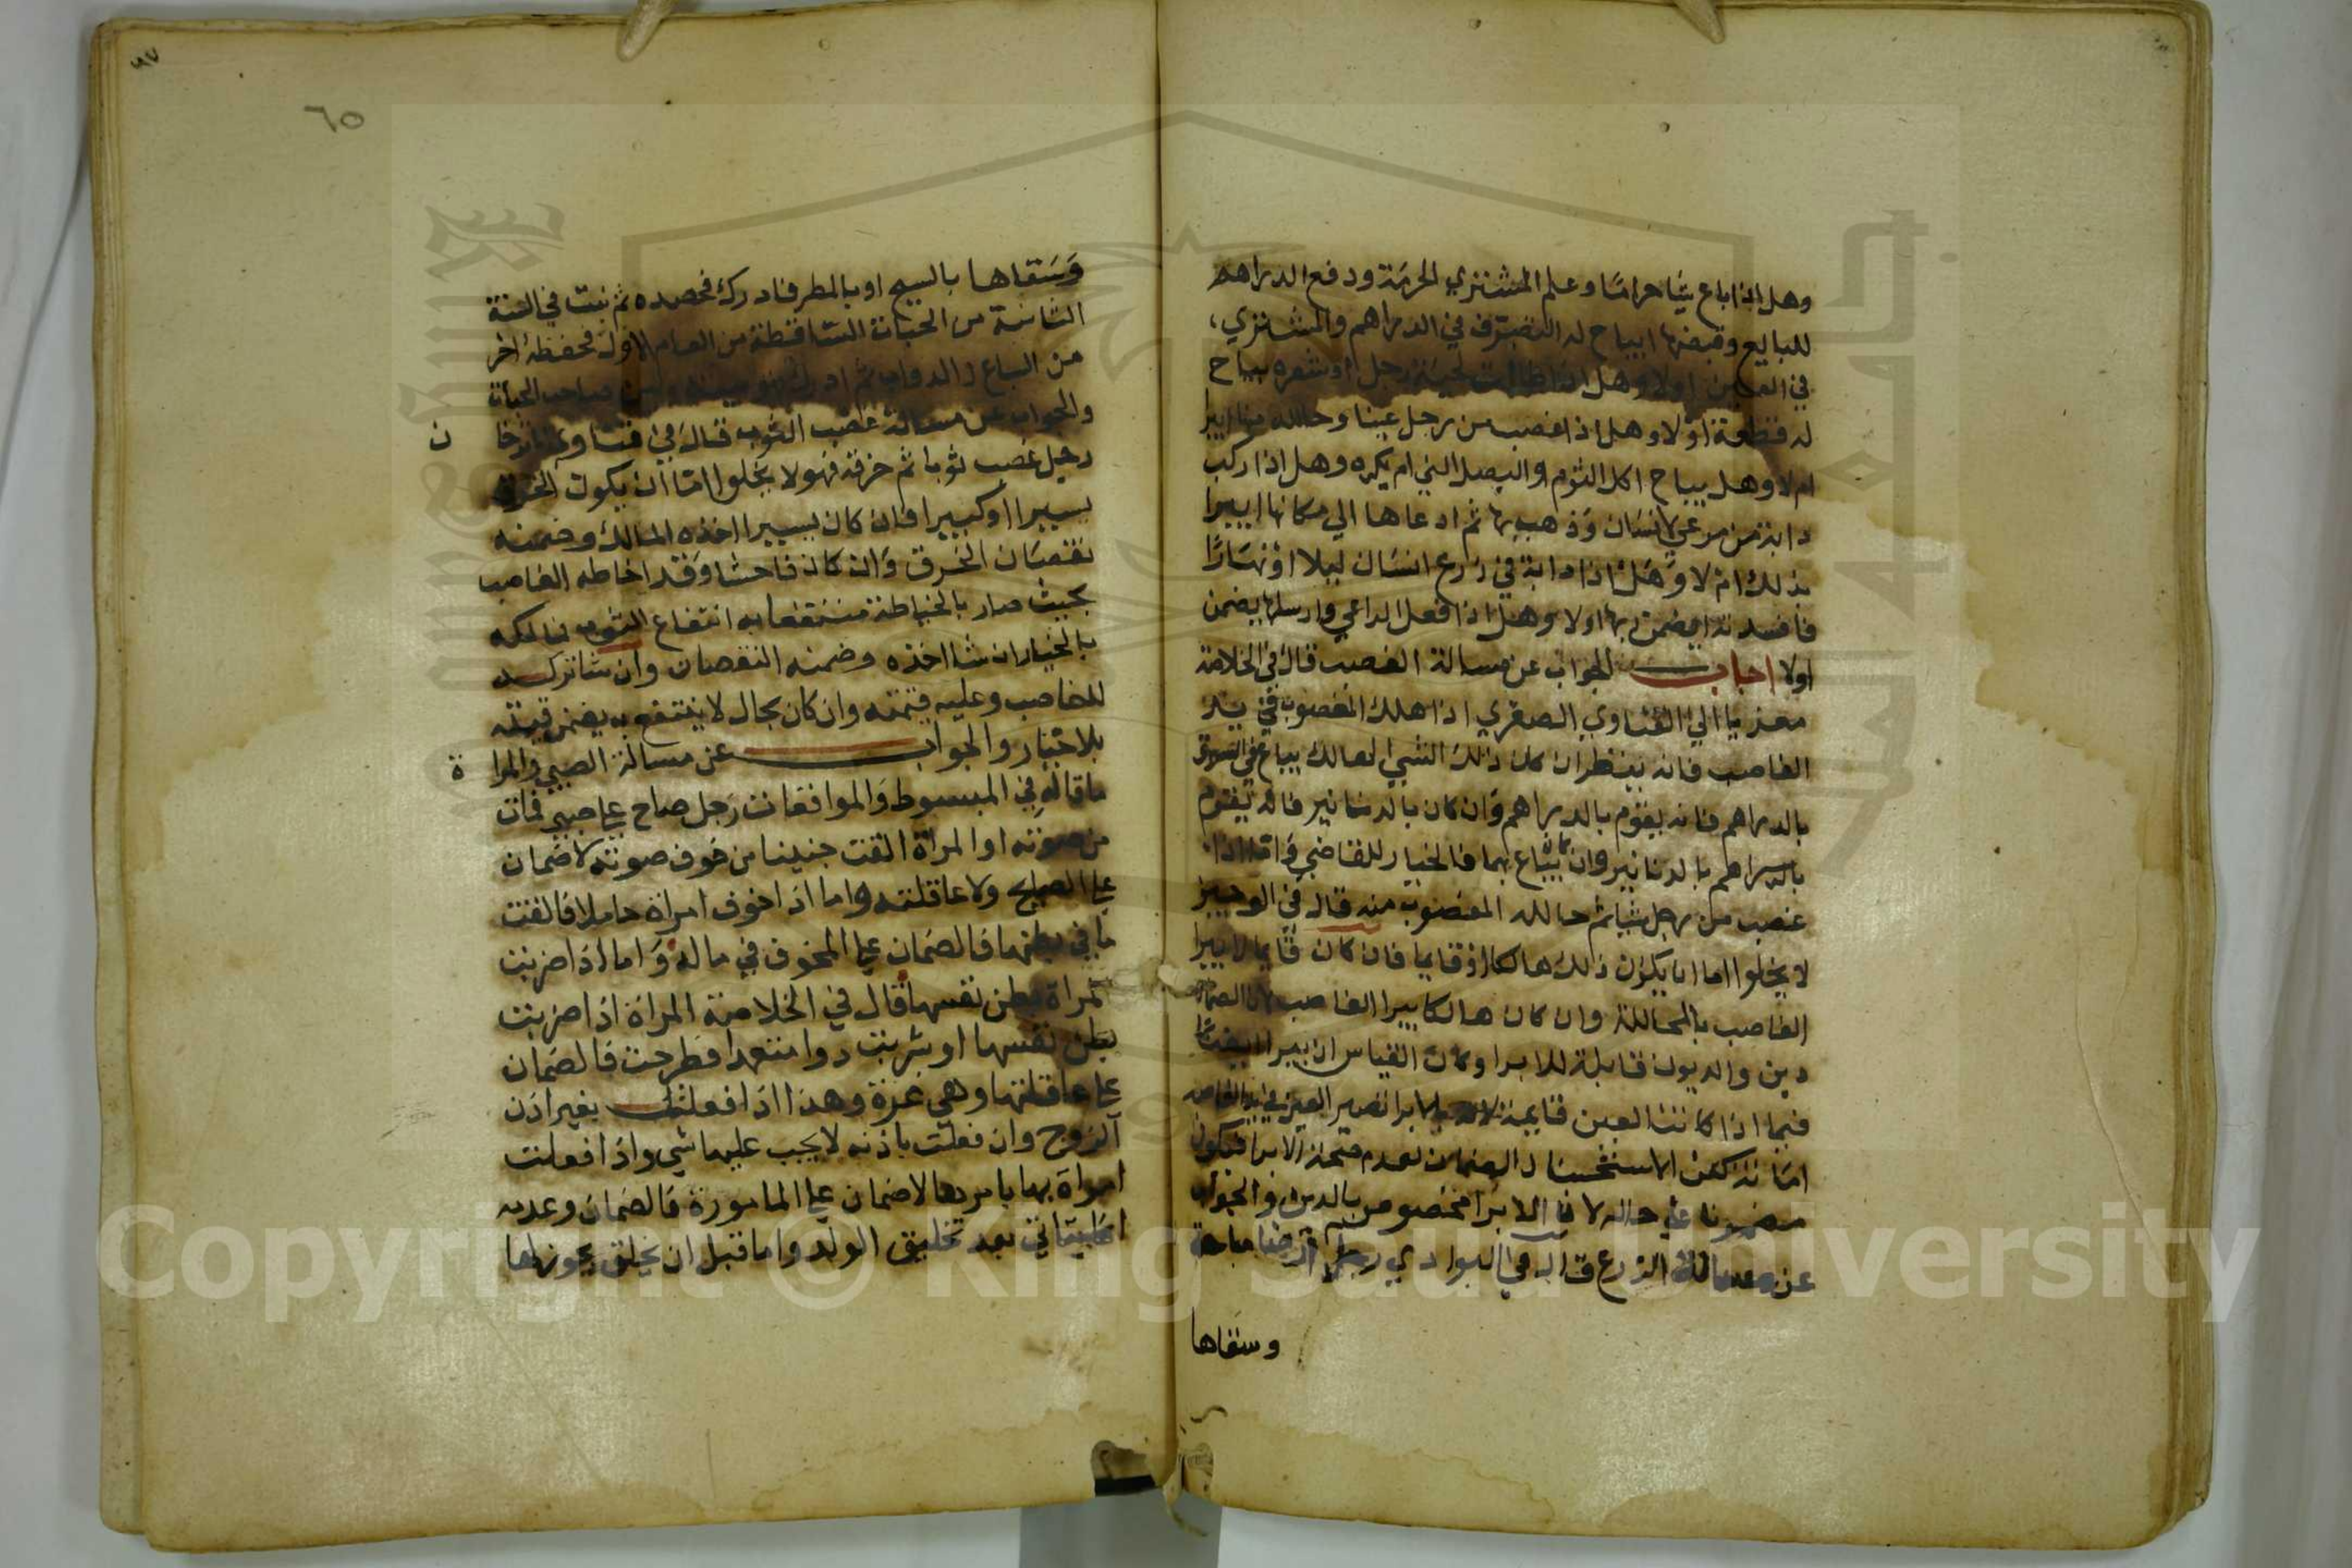 وهل اذا باع شيا حراما وعلم المشتري الحرمة ودفع الدراهم
للبايع وقبضها ايباح له التصرف في الدراهم والمشتري
في العين اولا وهل اذا طالت لحية رجل او شعره يباح
له قطعة اولا وهل اذا غصب من رجل عينا وحالله منها ايبرا
ام لا وهل يباح اكل الثوم والبصل الني ام يكره وهل اذا ركب
دابة من مرعي لانسان وذهب بها ثم ادعاها الي مكانها ايبرا
بذلك ام لا وهل اذا دابة في زرع انسان ليلا او نهارا
فافسدته ايضمن ربها اولا وهل اذا فعل الراعي وارسلها يضمن
اولا اجاب الجواب عن مسالة الغصب قال في الخلاصة
معزيا الي الفتاوي الصغري اذا هلك المغصوب في يد
الغاصب فانه ينظر ان كان ذلك الشي الهالك يباع في السوق
بالدراهم فانه يقوم بالدراهم وان كان بالدنانير فانه يقوم
بالدراهم بالدنانير وان كان يباع بهما فالخيار للقاضي واما اذا
غصب من رجل شيا ثم حالله المغصوب منه قال في الوجيز
لا يخلوا اما ان يكون ذلك هالكا او قايما فان كان قايما لا يبرا
الغاصب بالمحاللة وان كان هالكا يبرا الغاصب لان الضمان
دين والديون قابلة للابرا وكان القياس ان يبرا ايضا
فيما اذا كانت العين قايمة لانه بالابرا تصير العين في يد الغاصب
امانة لكن الاستحسان الضمان لعدم صحة الابرا فيكون
مضمونا علي حاله لان الابرا مخصوص بالدين والجواب
عن مسالة الزرع قال في البوادي رجل ارضا مباحة
وسقاها
٦٥
وسقاها بالسيح او بالمطر فادرك فحصده ثم نبت في السنة
الثانية من الحبات الساقطة من العام الاول فحفظه اخر
من السباع والدواب ثم ادرك فهو بينه وبين صاحب الحبات
والجواب عن مسالة غصب الثوب قال في فتاوي قاضي خا ن
رجل غصب ثوبا ثم خرقه فهو لا يخلوا اما ان يكون الخرق
يسيرا او كبيرا فان كان يسيرا اخذه المالك وضمنه
نقصان الخرق وان كان فاحشا وقد اخاطه الغاصب
بحيث صار بالخياطة منتفعا به انتفاع الثوب فمالكه
بالخيار ان شا اخذه وضمنه النقصان وان شا تركه
للغاصب وعليه قيمته وان كان بحال لا ينتفع به يضمن قيمته
بلا خيار والجواب عن مسالة الصبي والمرا ة
ما قاله في المبسوط والموافقات رجل صاح علي صبي فمات
من صوته او المراة القت جنينا من خوف صوته لا ضمان
علي الصايح ولا عاقلته واما اذا خوف امراة حاملا فالقت
ما في بطنها فالضمان علي المخوف في ماله واما اذا ضربت
المراة بطن نفسها قال في الخلاصة المراة اذا ضربت
بطن نفسها او شربت دوا متعمدا فطرحت فالضمان
علي عاقلتها وهي غرة وهذا اذا فعلت بغير اذن
الزوج وان فعلت باذنه لا يجب عليها شي واذا فعلت
امراة بها بامرها لا ضمان علي المامورة فالضمان وعدمه
انما ياتي بعد تخليق الولد واما قبل ان يخلق يجوز لها